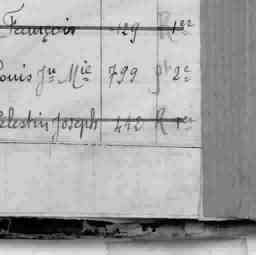 François 129 R 1er
Louis Jn Mie 799 gt 2e
Celestin Joseph 442 R 1er